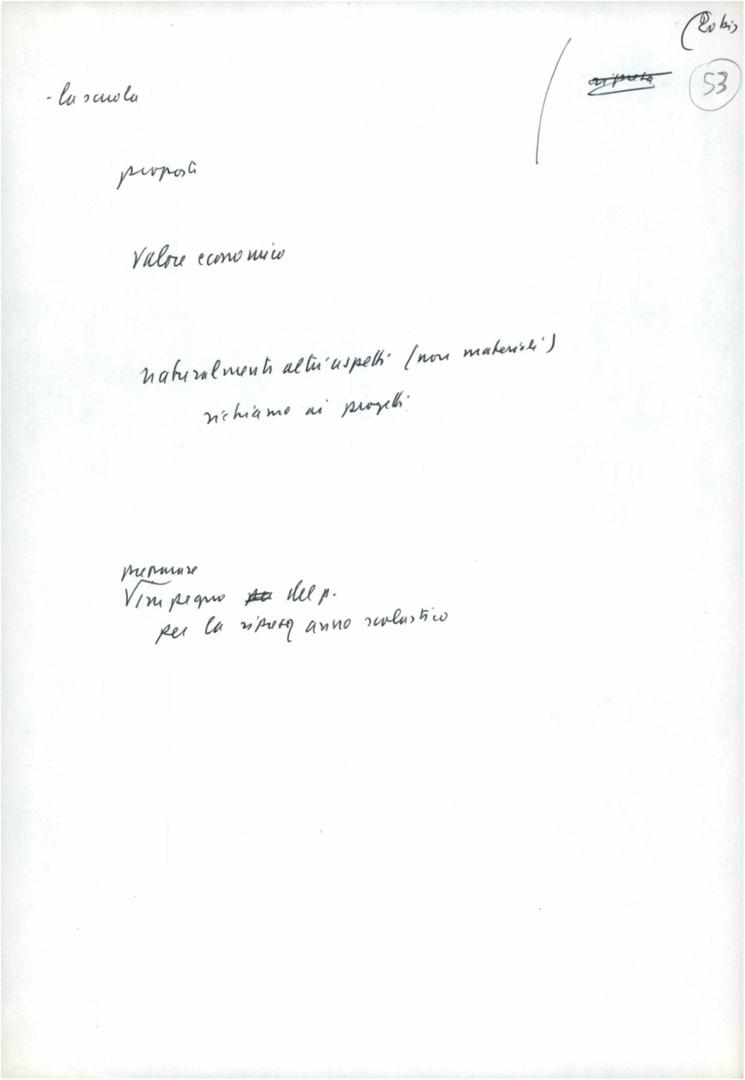 53
ripresa
- la scuola
proposti
valore economico
naturalmente altri aspetti (non materiali)
richiamo ai progetti
preparare
l'impegno del p.
per la ripresa anno scolastico